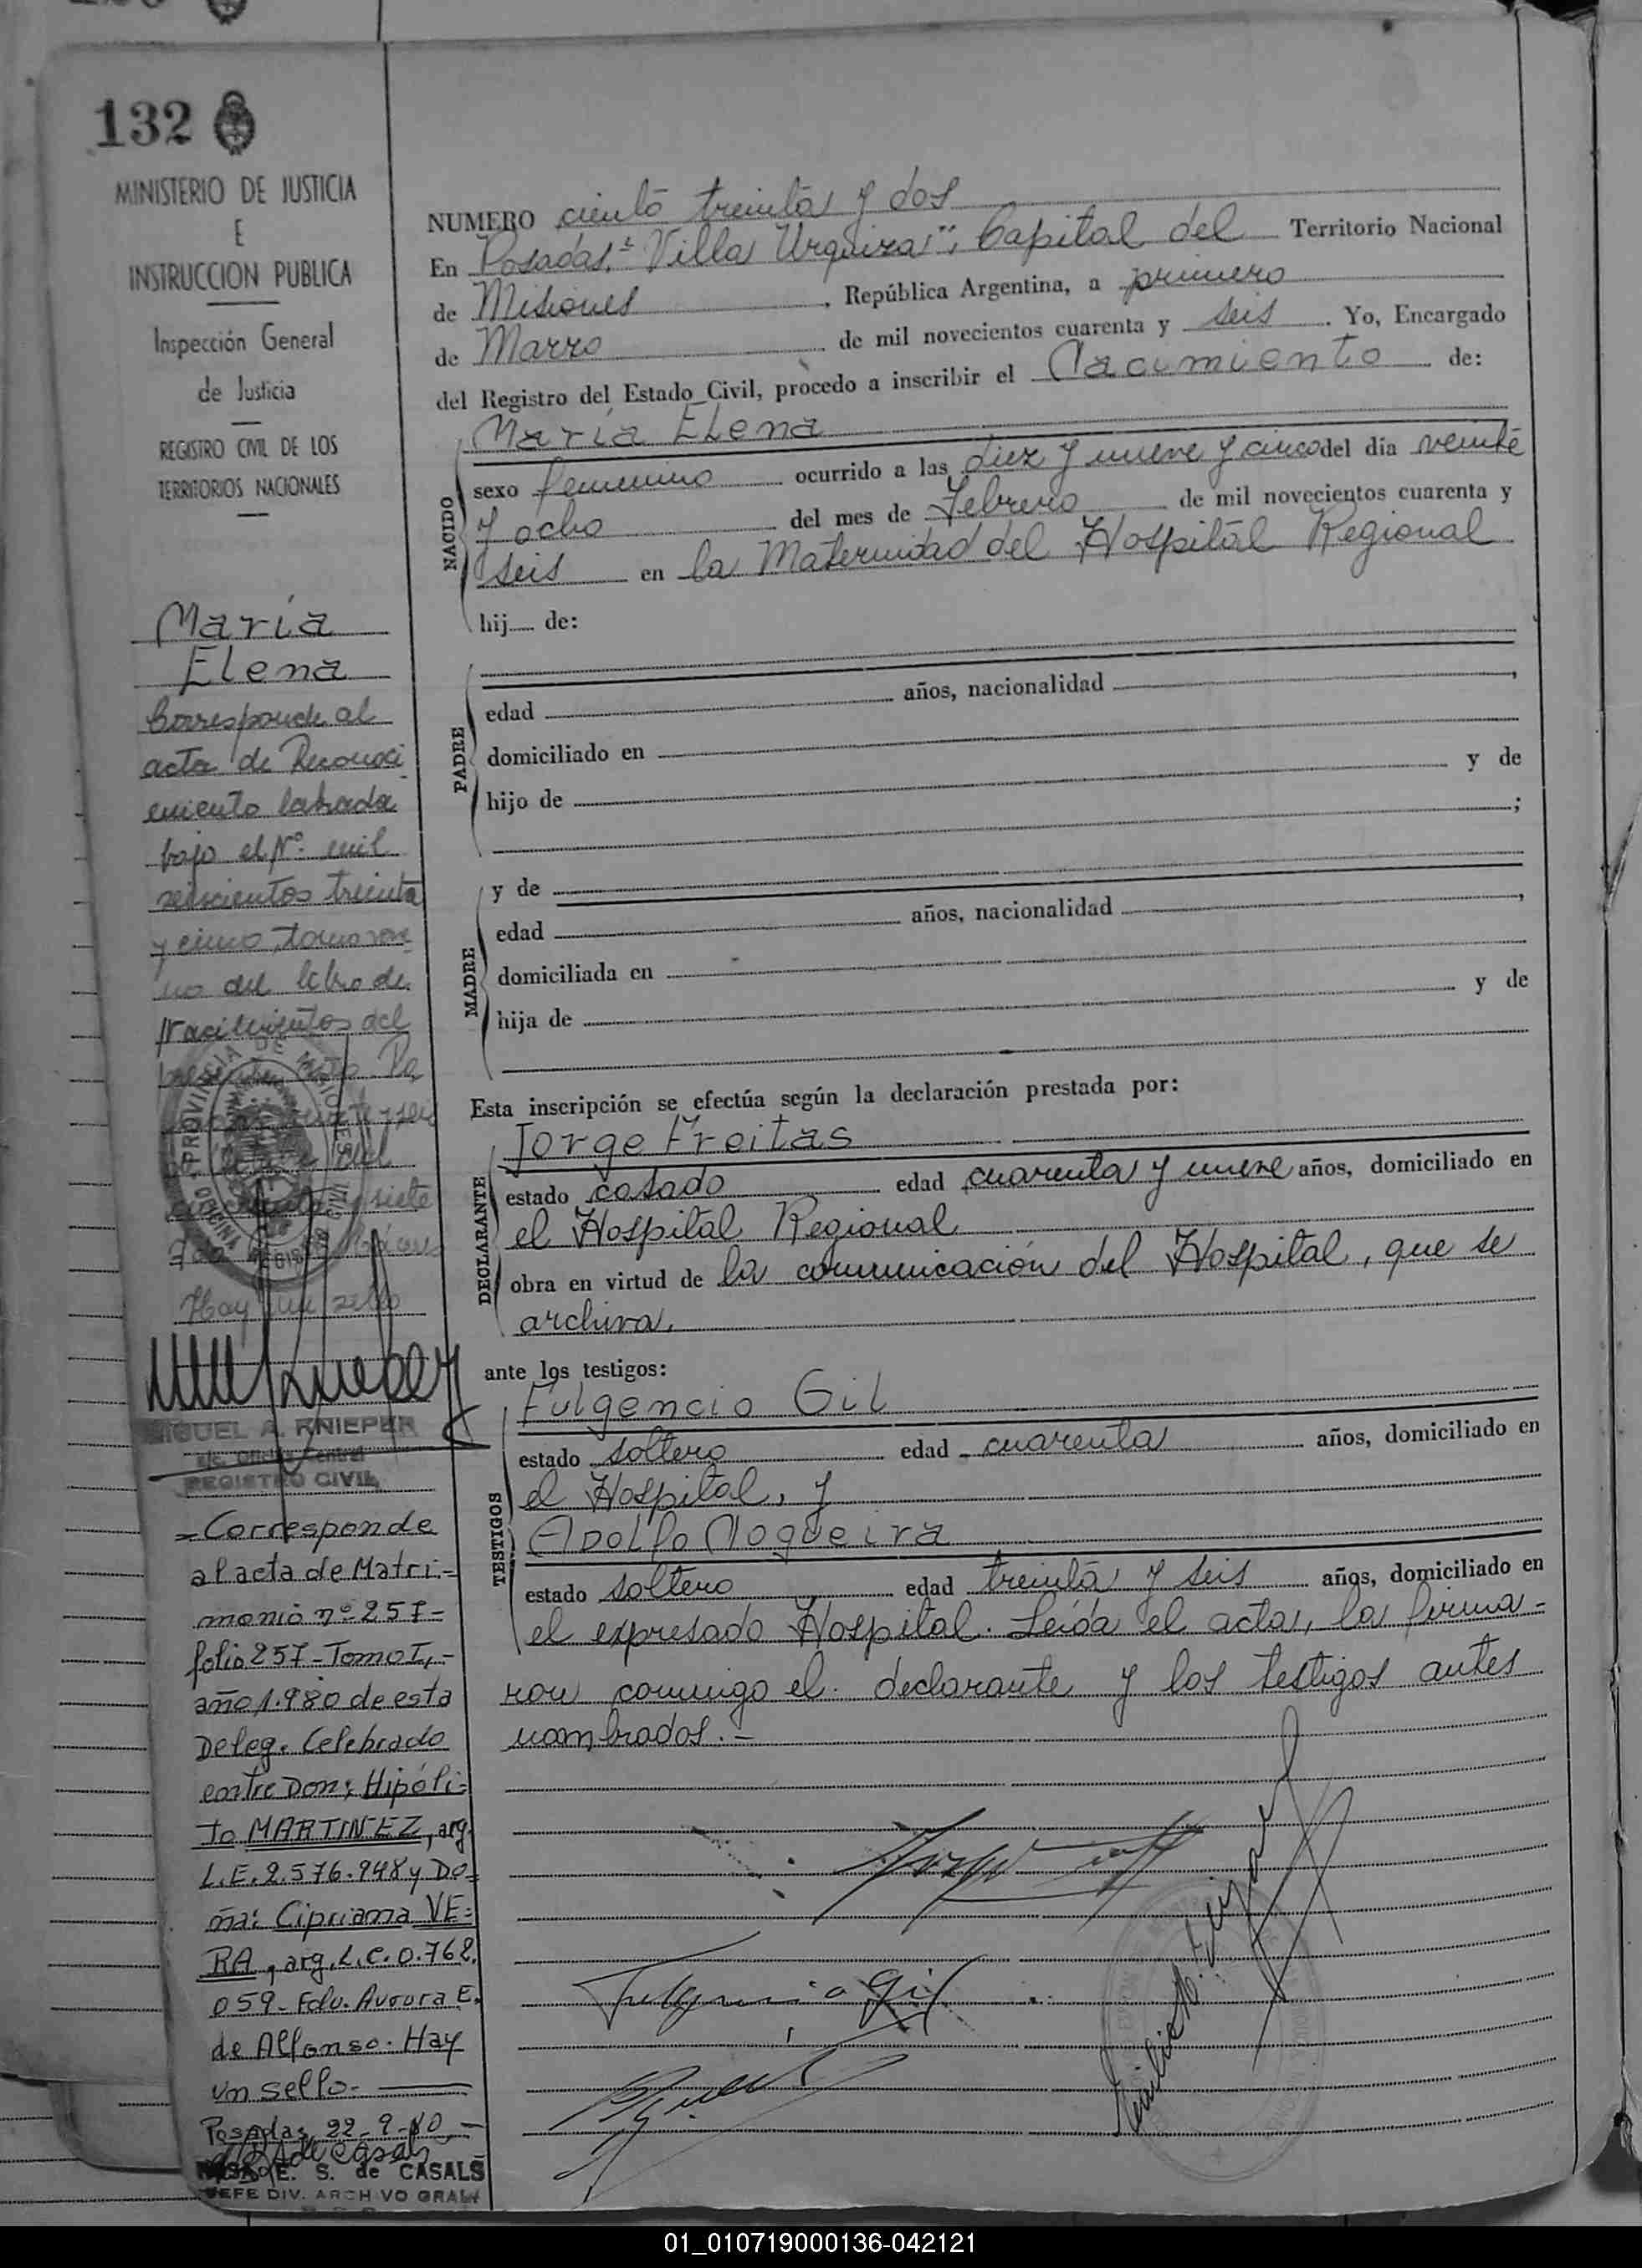 132
MINISTERIO DE JUSTICIA
E
INSTRUCCION PUBLICA
Inspección General
de Justicia
REGISTRO CIVIL DE LOS
TERRITORIOS NACIONALES
María
Elena
Corresponde al
acta de Reconoci
miento labrada
bajo el Nº mil
seiscientos treinta
y cinco, tomo
no del libro de
Nacimientos del
siete
Hay un sello
MIGUEL A. KNIEPER
Oficina Central
REGISTRO CIVIL
=Corresponde
al acta de Matri=
monio nº 257=
folio 257-Tomo I,-
año 1.980 de esta
Deleg. Celebrado
entre Don: Hipóli=
to MARTINEZ, arg.
L.E. 2.576.948 y Do=
ña: Cipriana VE=
RA, arg. L.C. 0.762.
059- Fdo. Aurora E.
de Alfonso. Hay
un sello.
Posadas 22-9-80
E. S. de CASALS
JEFE DIV. ARCHIVO GRAL
NUMERO ciento treinta y dos
En Posadas, "Villa Urquiza", Capital del Territorio Nacional
de Misiones, República Argentina, a primero
de Marzo de mil novecientos cuarenta y seis. Yo, Encargado
del Registro del Estado Civil, procedo a inscribir el Nacimiento de:
NACIDO
María Elena
sexo femenino ocurrido a las diez y nueve y cinco del día veinte
y ocho del mes de Febrero de mil novecientos cuarenta y
seis en la Maternidad del Hospital Regional
hij de:
PADRE
edad años, nacionalidad ,
domiciliado en
hijo de y de
;
MADRE
y de
edad años, nacionalidad ,
domiciliada en
hija de y de
Esta inscripción se efectúa según la declaración prestada por:
DECLARANTE
Jorge Freitas
estado casado edad cuarenta y nueve años, domiciliado en
el Hospital Regional
obra en virtud de la comunicación del Hospital, que se
archiva.
ante los testigos:
TESTIGOS
Fulgencio Gil
estado soltero edad cuarenta años, domiciliado en
el Hospital, y
Adolfo Nogueira
estado soltero edad treinta y seis años, domiciliado en
el expresado Hospital. Leída el acta, la firma=
ron conmigo el declarante y los testigos antes
nombrados.-
Fulgencio Gil
01_010719000136-042121